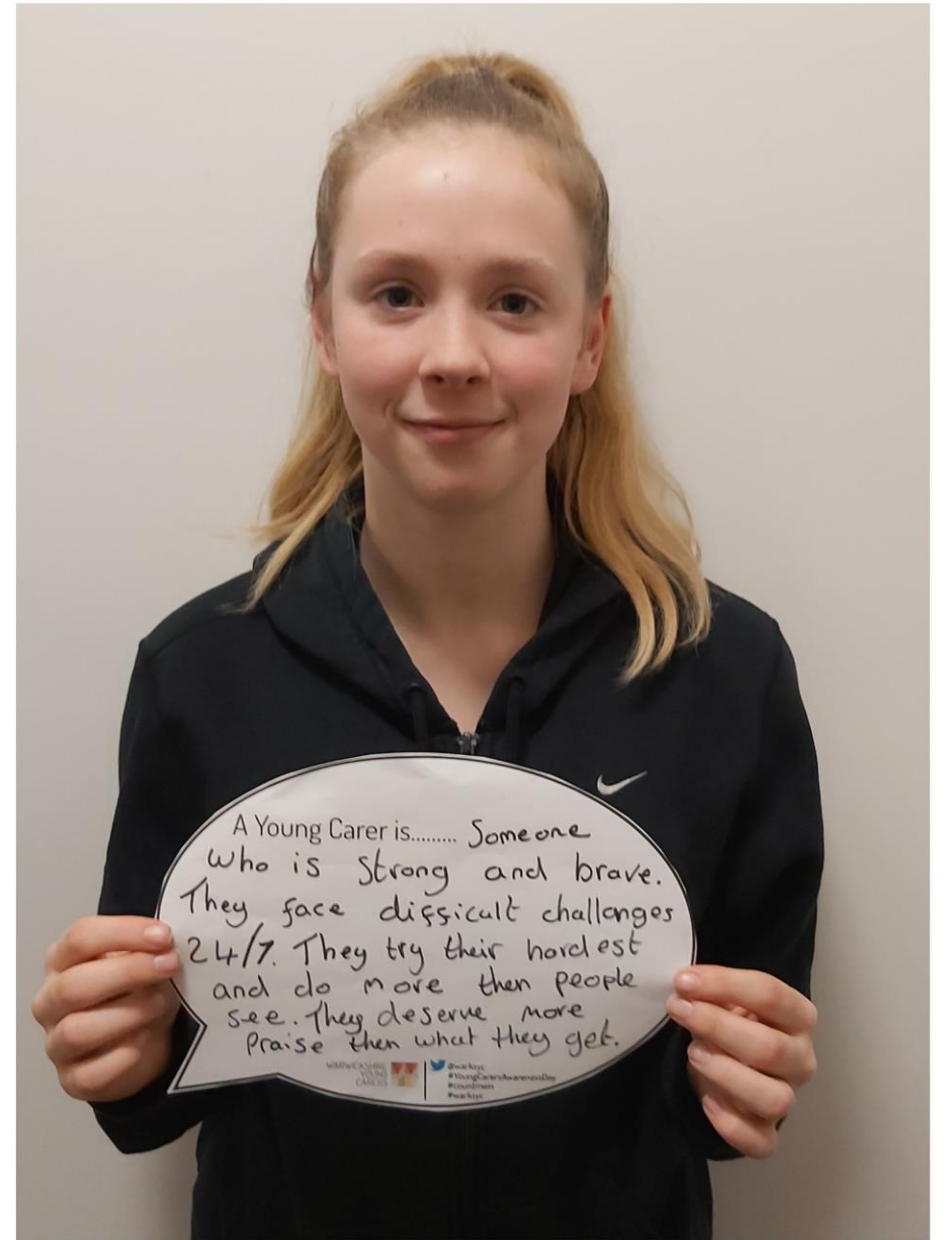 A Young Carer is......... Someone
who is strong and brave.
They face difficult challenges
24/7. They try their hardest
and do more then people
see. They deserve more
praise then what they get.
WARWICKSHIRE
YOUNG
CARERS
@warksyc
#YoungCarersAwarenessDay
#countmein
#warksyc